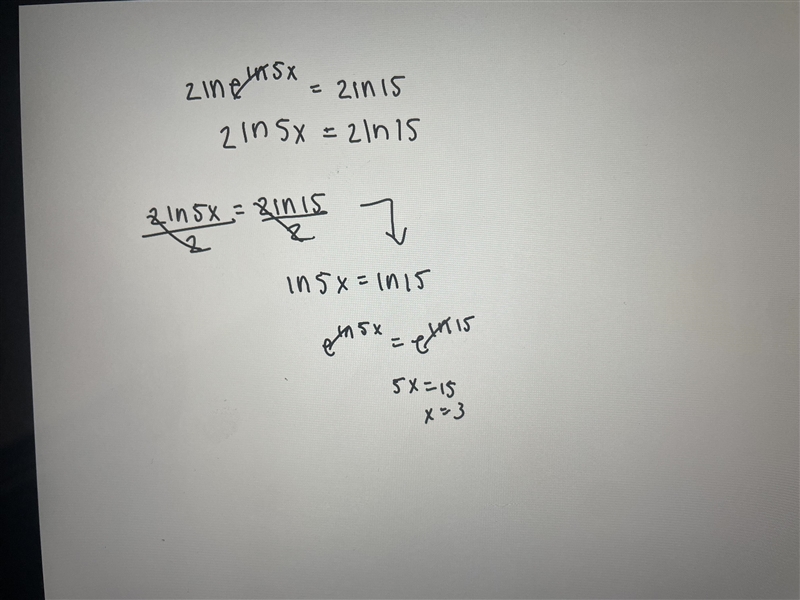 2ln e^ln5x = 2ln15
2ln5x = 2ln15
2ln5x/2 = 2ln15/2
ln5x = ln15
e^ln5x = e^ln15
5x=15
x=3